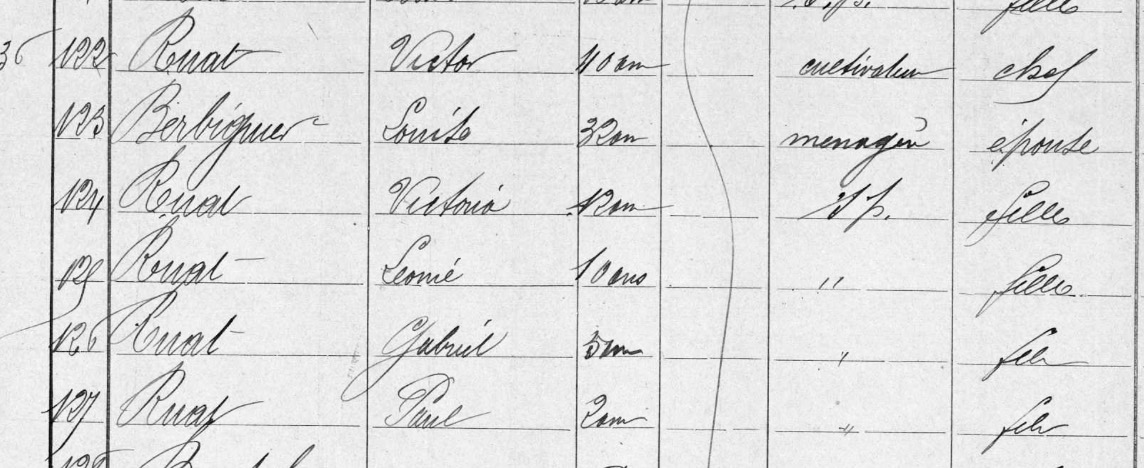 36 122 Ruat Victor 40 ans cultivateur chef
123 Berbiguier Louise 32 ans menagère épouse
124 Ruat Victoria 12 ans s.p. fille
125 Ruat Leonie 10 ans " fille
126 Ruat Gabriel 5 ans " fils
127 Ruat Paul 2 ans " fils